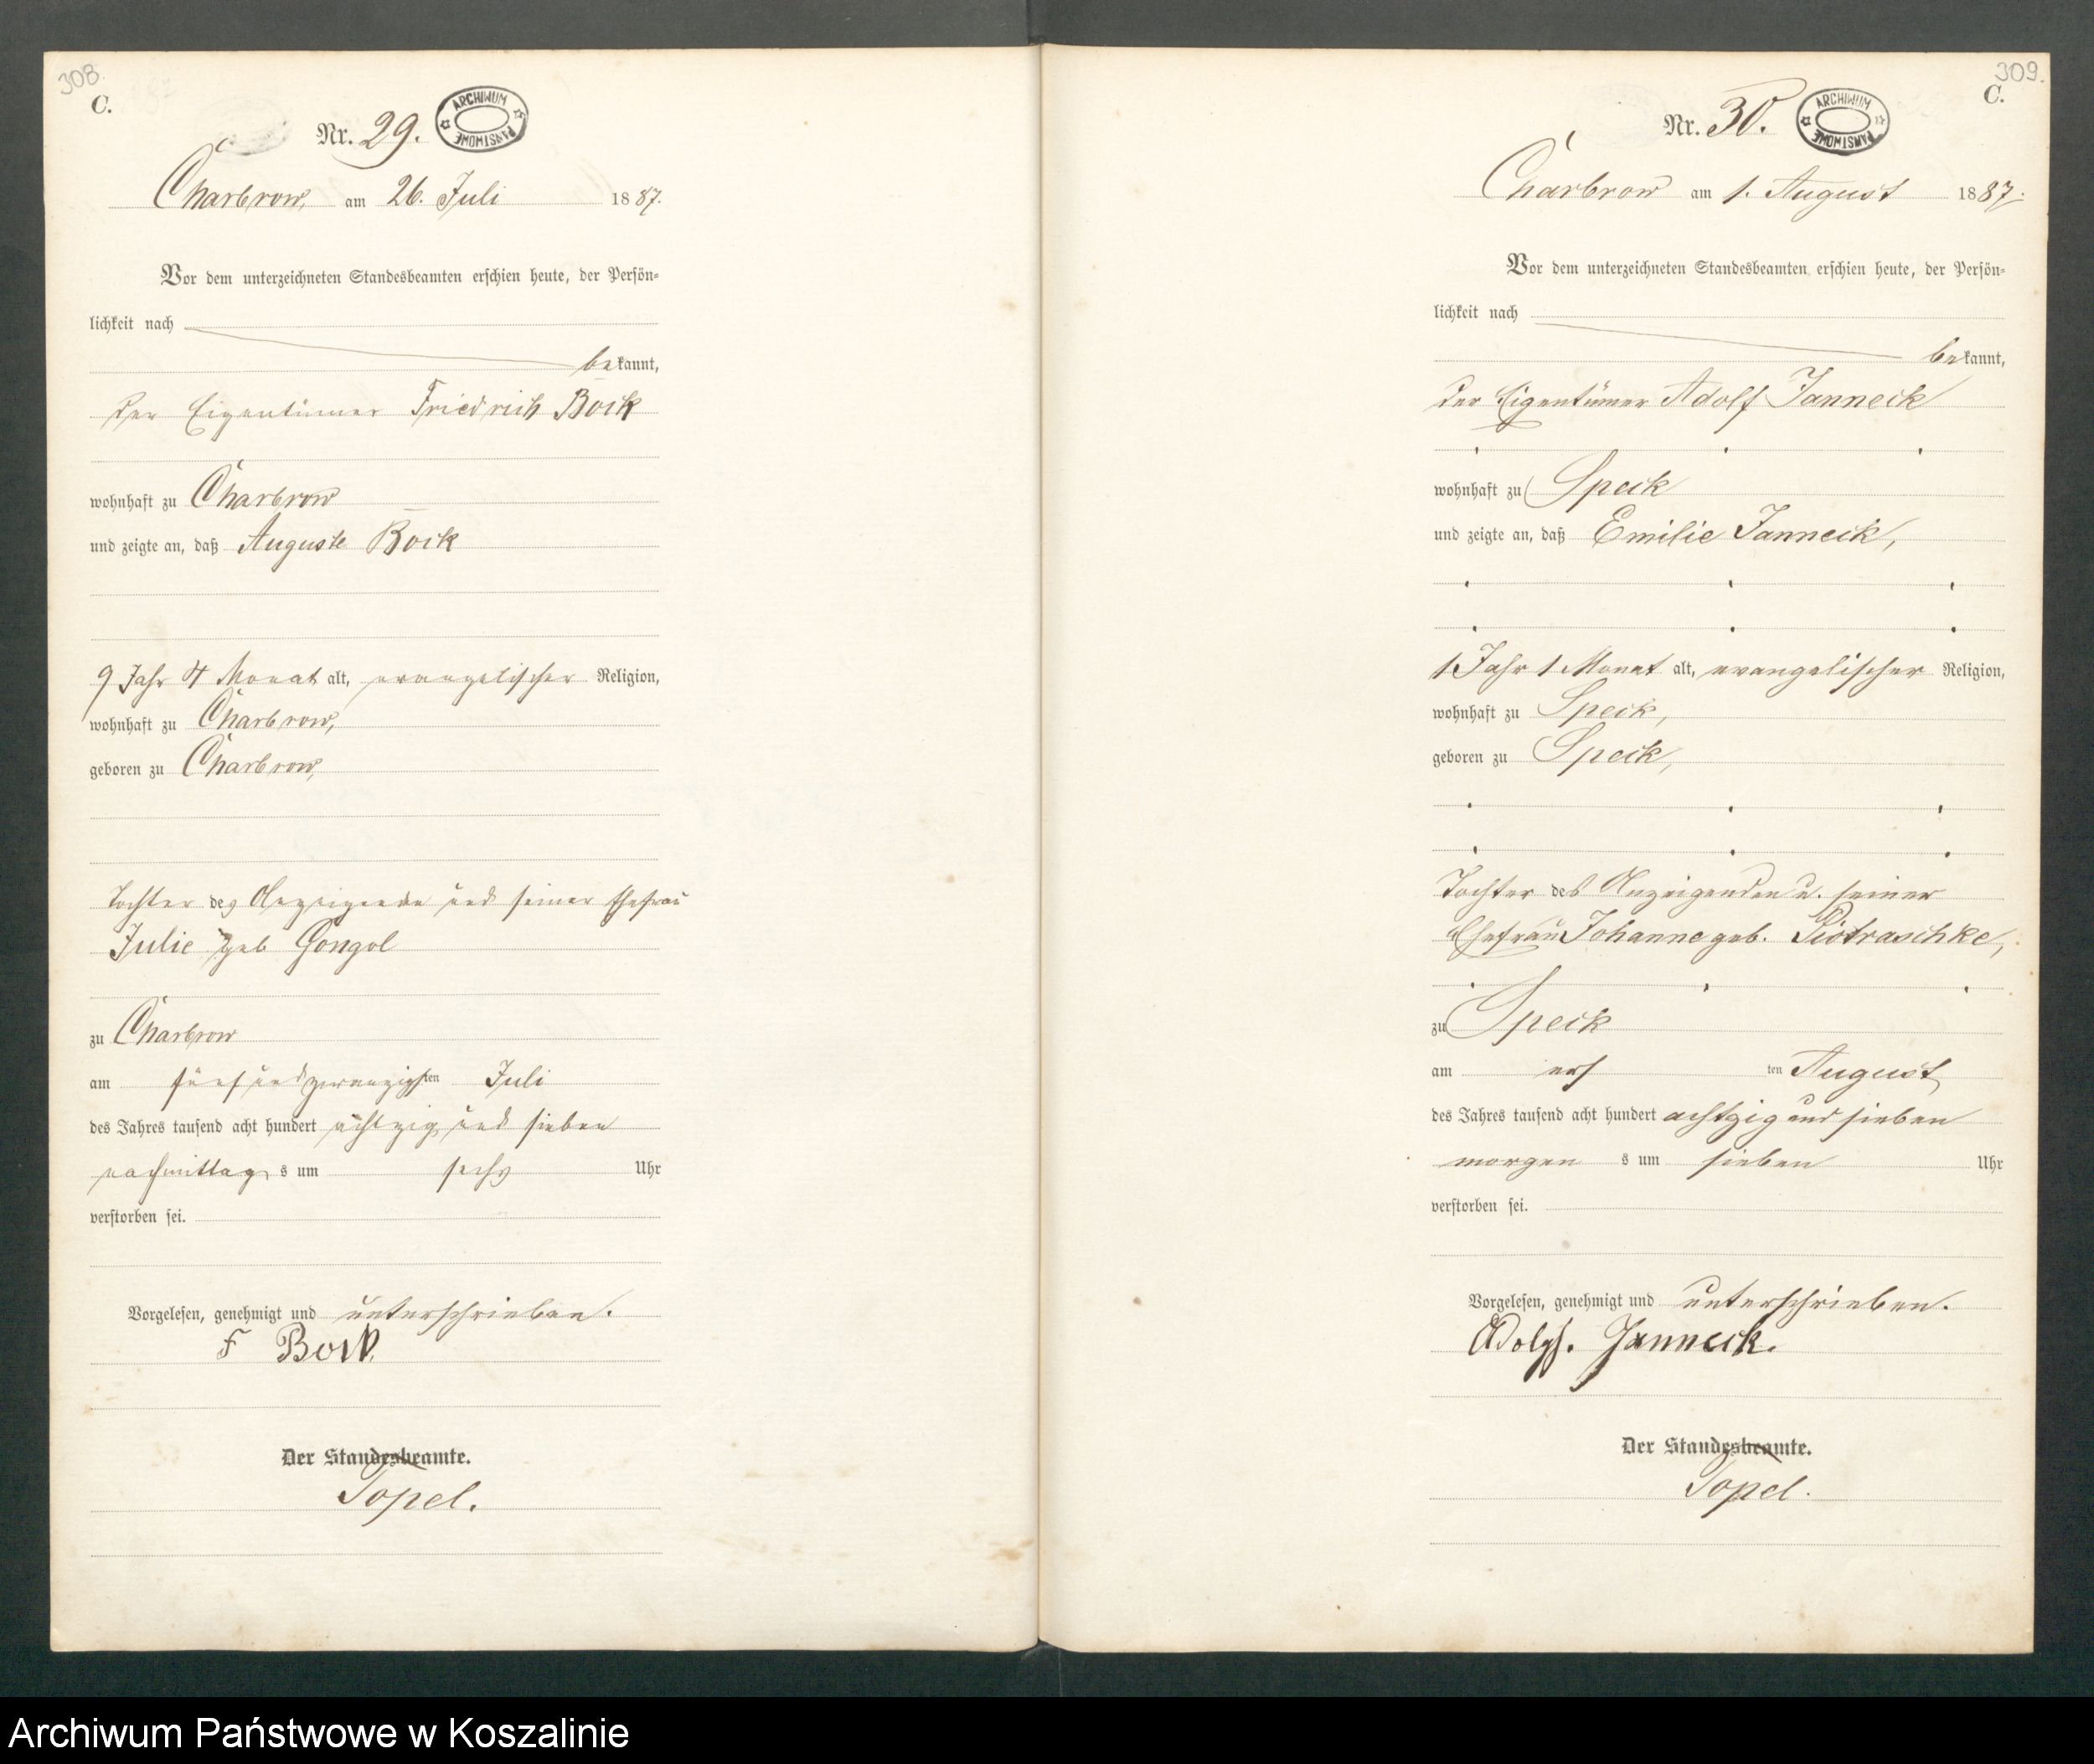 308.
C.
Nr. 29.
ARCHIWUM PAŃSTWOWE
Charbrow, am 26. Juli 1887.
Vor dem unterzeichneten Standesbeamten erschien heute, der Persön-
lichkeit nach
bekannt,
der Eigentümer Friedrich Bock
wohnhaft zu Charbrow
und zeigte an, daß Auguste Bock
9 Jahr 4 Monat alt, evangelischer Religion,
wohnhaft zu Charbrow,
geboren zu Charbrow,
Tochter des Anzeigenden und seiner Ehefrau
Julie geb Gongol
zu Charbrow
am fünf und zwanzigsten Juli
des Jahres tausend acht hundert achtzig und sieben
nachmittags um sechs Uhr
verstorben sei.
Vorgelesen, genehmigt und unterschrieben.
F Bock
Der Standesbeamte.
Topel.
309.
C.
Nr. 30.
ARCHIWUM PAŃSTWOWE
Charbrow am 1. August 1887.
Vor dem unterzeichneten Standesbeamten erschien heute, der Persön-
lichkeit nach
bekannt,
der Eigentümer Adolf Janneck
wohnhaft zu Speck
und zeigte an, daß Emilie Janneck,
1 Jahr 1 Monat alt, evangelischer Religion,
wohnhaft zu Speck,
geboren zu Speck,
Tochter des Anzeigenden u. seiner
Ehefrau Johanne geb. Piotraschke,
zu Speck
am ersten August
des Jahres tausend acht hundert achtzig und sieben
morgens um sieben Uhr
verstorben sei.
Vorgelesen, genehmigt und unterschrieben.
Adolf. Janneck.
Der Standesbeamte.
Topel.
Archiwum Państwowe w Koszalinie